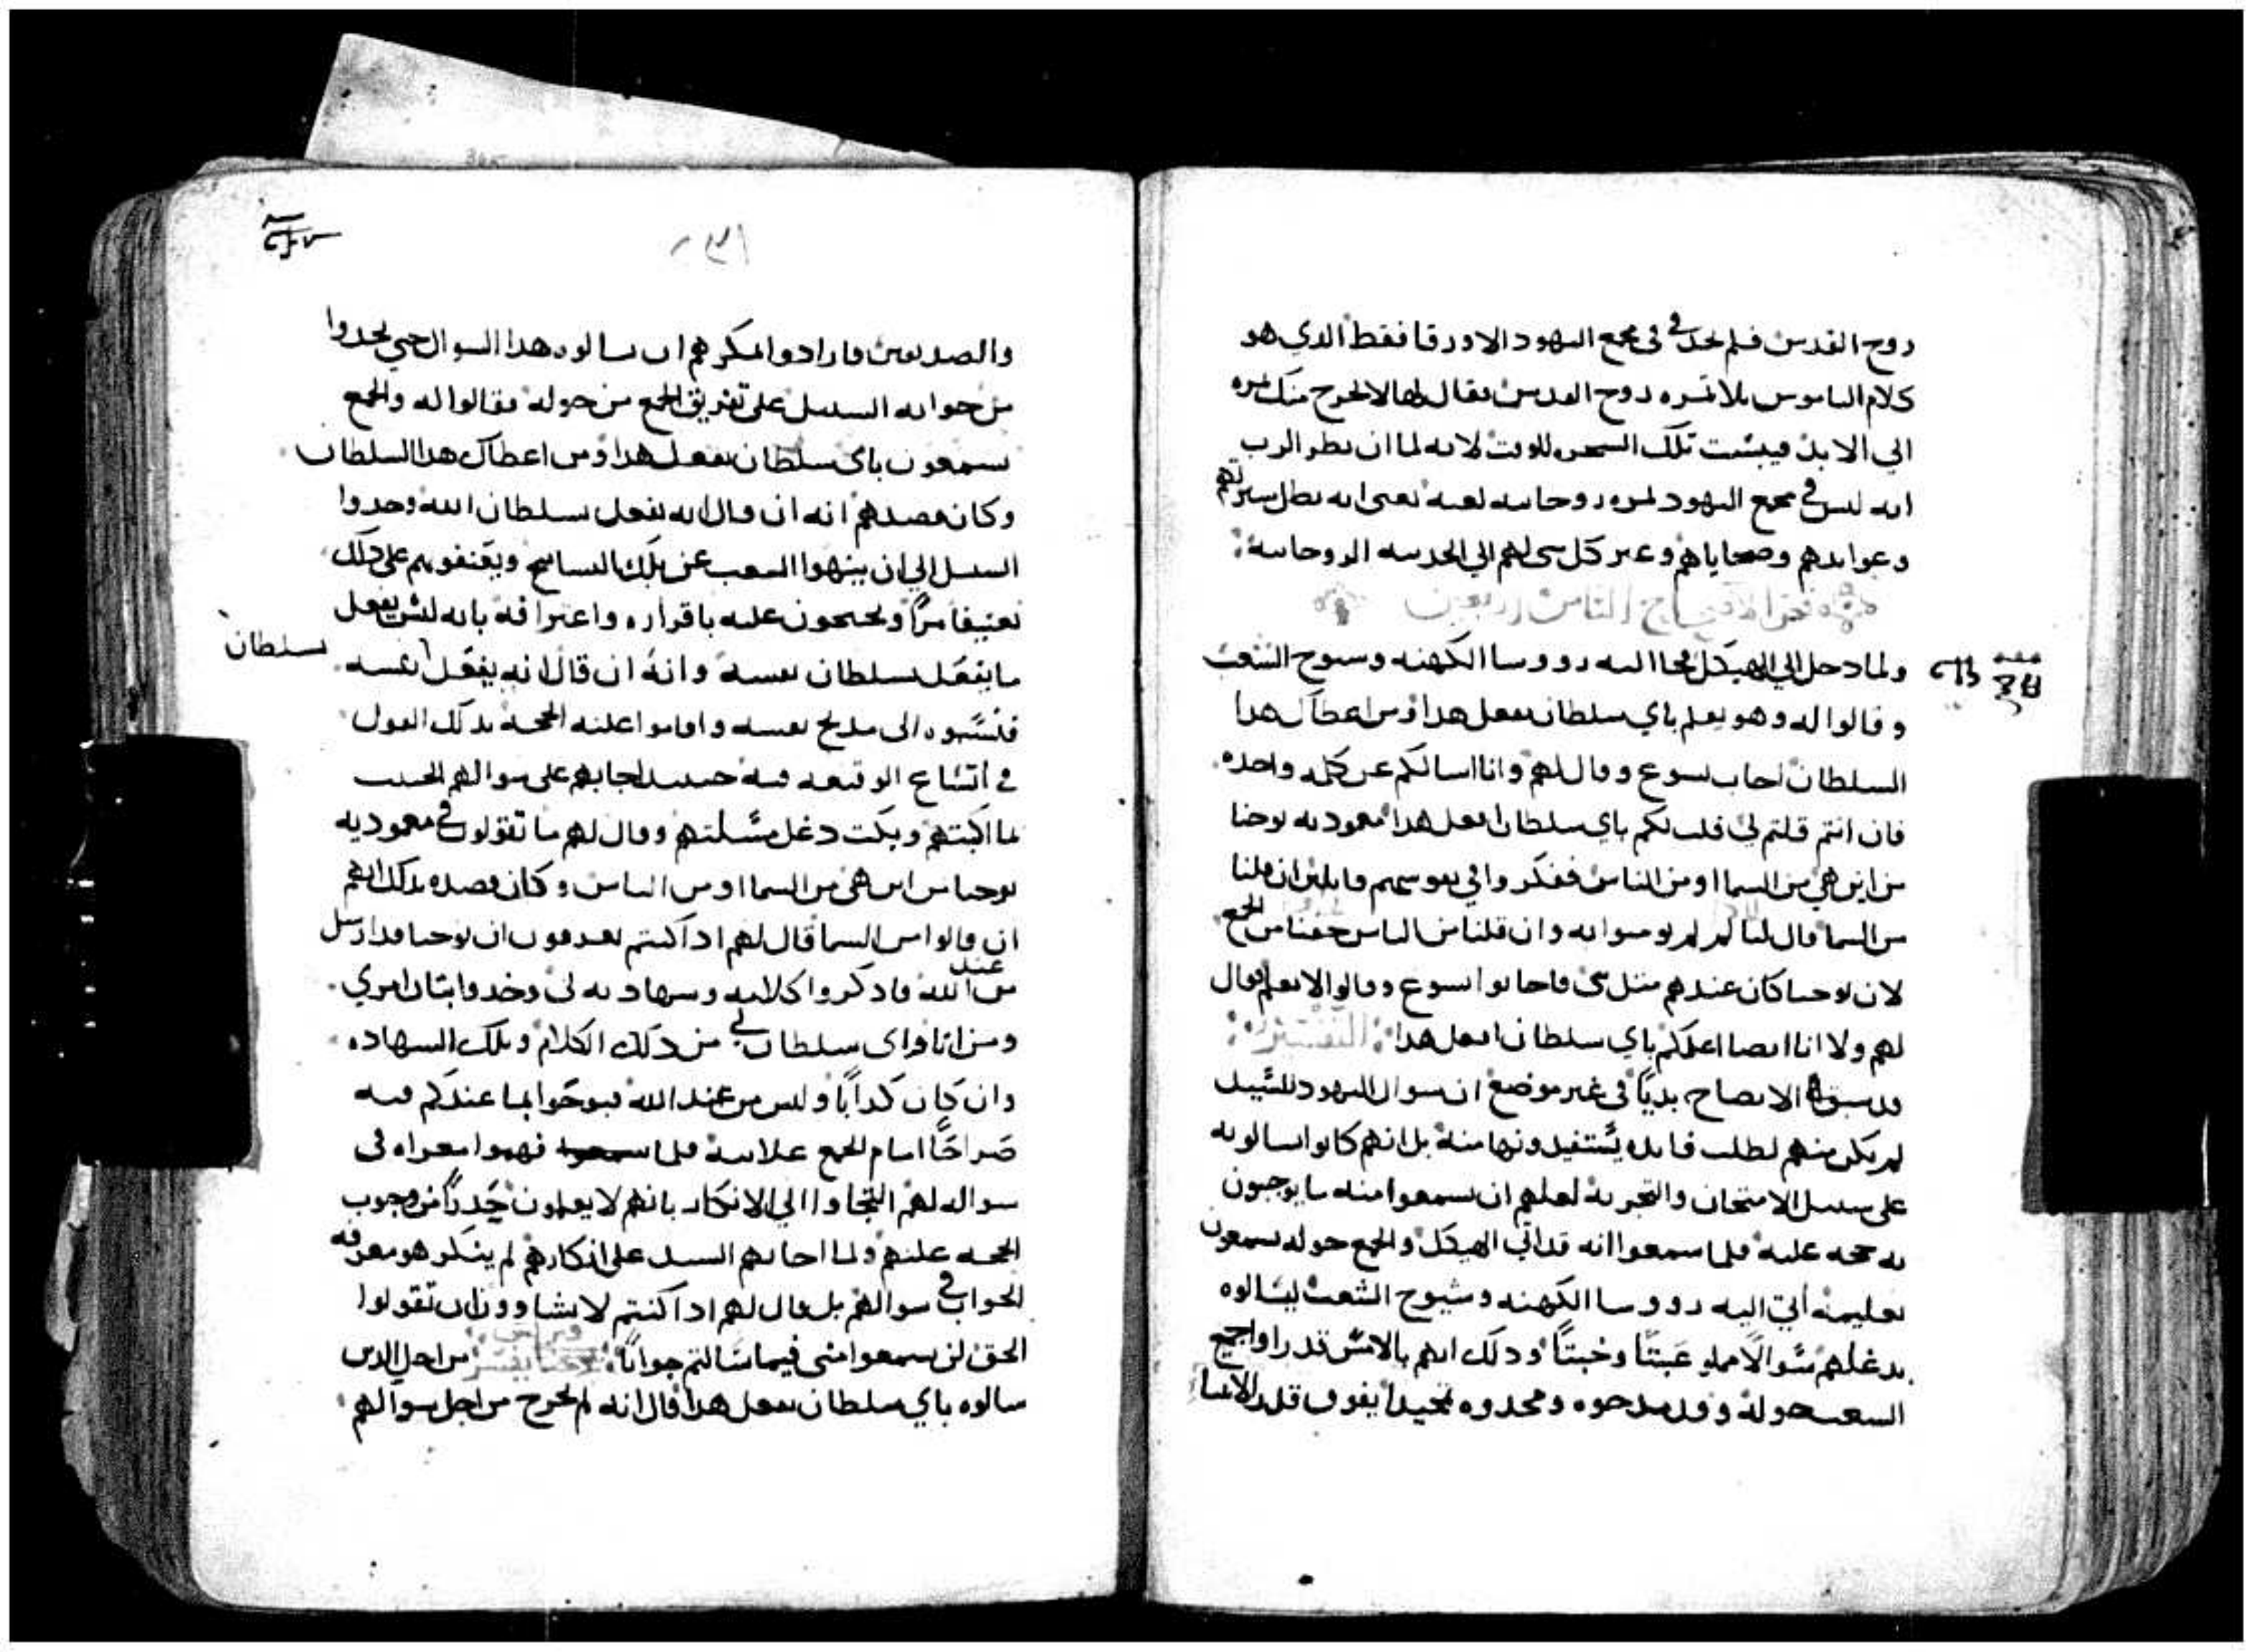 روح القدس فلم يجد في مجمع اليهود الا ورقا فقط الدي هو
كلام الناموس بلا تمره روح القدس فقال لها لا يخرج منك تمره
الي الابد فيبست تلك الشجره للوقت لانه لما ان نظر الرب
انه ليس في مجمع اليهود تمره روحانيه لعنه يعني انه بطل سيرتهم
وعوايدهم وضحاياهم وغير كل شي لهم الي الخدمه الروحانيه
الاصحاح الثامن واربعين
ولما دخل الي الهيكل جاا اليه رووسا الكهنه وشيوخ الشعب
وقالوا له وهو يعلم باي سلطان تفعل هدا ومن اعطاك هدا
السلطان اجاب يسوع وقال لهم وانا اسالكم عن كلمه واحده
فان انتم قلتم لي قلت لكم باي سلطان افعل هدا معموديه يوحنا
من اين هي من السما او من الناس ففكروا في نفوسهم قايلين ان قلنا
من السما قال لنا لم لم تومنوا به وان قلنا من الناس خفنا من الجمع
لان يوحنا كان عندهم متل نبي فاجابوا يسوع وقالوا لا نعلم فقال
لهم ولا انا ايضا اعلمكم باي سلطان افعل هدا التفسير
قد سبق الايضاح بديًا في غير موضع ان سوال اليهود للسيد
لم يكن منهم لطلب فايده يستفيدونها منه بل انهم كانوا يسالونه
علي سبيل الامتحان والتجربه لعلهم ان يسمعوا منه ما يوجبون
به حجه عليه فلما سمعوا انه قد اتي الهيكل والجمع حوله يسمعون
تعليمه أتي اليه رووسا الكهنه وشيوخ الشعب ليسالوه
بدغلهم سوالًا مملو عبتًا وخبتًا ودلك انهم بالامس قد راوا جميع
الشعب حوله وقد مدحوه ومجدوه تمجيدا يفوق قدر الانبيا
والصديقين فارادوا بمكرهم ان يسالوه هدا السوال حتي يجدوا
من جوابه السبيل علي تفريق الجمع من حوله فقالوا له والجمع
يسمعون باي سلطان تفعل هدا ومن اعطاك هدا السلطان
وكان قصدهم انه ان قال انه يفعل بسلطان الله وجدوا
السبيل الي ان ينهوا السعب عن تلك التسابيح ويعنفونهم علي دلك
تعنيفا مرًا ويحتجون عليه باقراره واعترافه بانه ليس يفعل
ما يفعل بسلطان نفسه وانه ان قال انه يفعل بسلطان نفسه
فنسبوه الي مديح نفسه واقاموا عليه الحجه بدلك القول
في اتساع الوقيعه فيه حينيد اجابهم علي سوالهم الخبيث
بما اكبتهم وبكت دغل مسلتهم وقال لهم ما تقولون في معموديه
يوحنا من اين هي من السما او من الناس وكان قصده بدلك انهم
ان قالوا من السما قال لهم ادا كنتم تعرفون ان يوحنا قد ارسل
من عند الله فادكروا كلامه وسهادته لي وخدوا بيان امري
ومن انا واي سلطان لي من دلك الكلام وتلك السهاده
وان كان كدابًا وليس من عند الله فبوحوا بما عندكم فيه
صراحًا امام الجمع علانيه فلما فهموا مغزاه في
سواله لهم التجاوا الي الانكار بانهم لا يعلمون حدرًا من وجوب
الحجه عليهم ولما اجابهم السيد علي انكارهم لم ينكر هو معرفه
الجواب في سوالهم بل قال لهم ادا كنتم لا تشاوون ان تقولوا
الحق لن تسمعوا مني فيما سالتم جوابًا من اجل الدين
سالوه باي سلطان تفعل هدا قال انه لم يخرج من اجل سوالهم